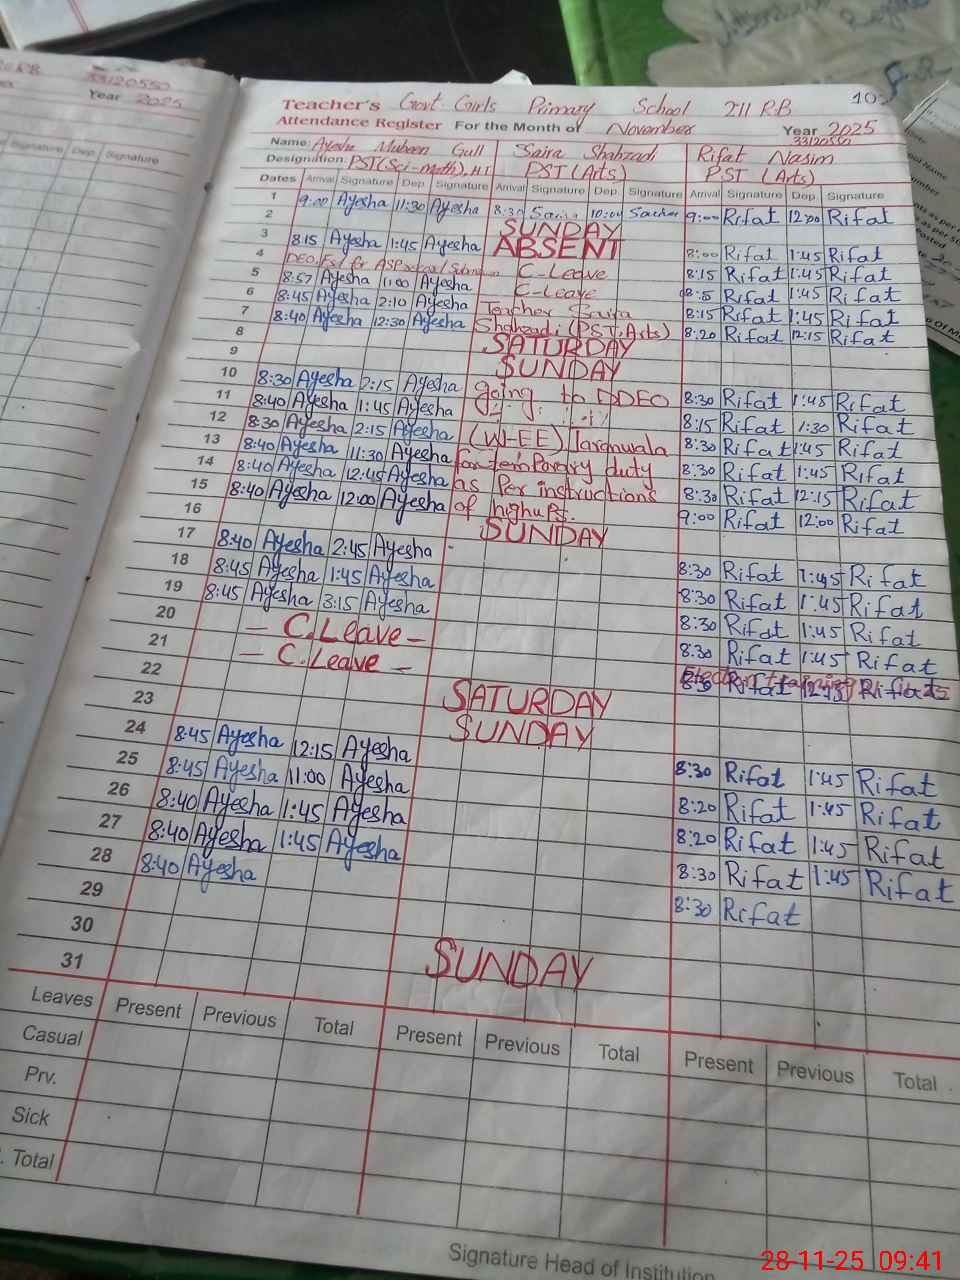 33120550
Year 2025
Signature Dep. Signature
10
Teacher's Govt. Girls Primary School 211 R.B
Attendance Register For the Month of November Year 2025
33120550
Name: Ayesha Mubeen Gull Saira Shahzadi Rifat Nasim
Designation: PST(Sci-math), H.T PST (Arts) PST (Arts)
Dates Arrival Signature Dep. Signature Arrival Signature Dep. Signature Arrival Signature Dep. Signature
1 9:00 Ayesha 11:30 Ayesha 8:30 Saira 10:00 9:00 Rifat 12:00 Rifat
2 SUNDAY
3 8:15 Ayesha 1:45 Ayesha ABSENT 8:00 Rifat 1:45 Rifat
4 DEO. for C-Leave 8:15 Rifat 1:45 Rifat
5 8:57 Ayesha 11:00 Ayesha C-Leave Rifat 1:45 Rifat
6 8:45 Ayesha 2:10 Ayesha Teacher Saira 8:15 Rifat 1:45 Rifat
7 8:40 Ayesha 12:30 Ayesha Shahzadi (PST, Arts) 8:20 Rifat 12:15 Rifat
8 SATURDAY
9 SUNDAY
10 8:30 Ayesha 2:15 Ayesha going to DDEO 8:30 Rifat 1:45 Rifat
11 8:40 Ayesha 1:45 Ayesha 8:15 Rifat 1:30 Rifat
12 8:30 Ayesha 2:15 Ayesha (W-EE) Jaranwala 8:30 Rifat 1:45 Rifat
13 8:40 Ayesha 11:30 Ayesha for temporary duty 8:30 Rifat 1:45 Rifat
14 8:40 Ayesha 12:45 Ayesha as Per instructions 8:30 Rifat 12:15 Rifat
15 8:40 Ayesha 12:00 Ayesha of highups. 9:00 Rifat 12:00 Rifat
16 SUNDAY
17 8:40 Ayesha 2:45 Ayesha 8:30 Rifat 1:45 Rifat
18 8:45 Ayesha 1:45 Ayesha 8:30 Rifat 1:45 Rifat
19 8:45 Ayesha 3:15 Ayesha 8:30 Rifat 1:45 Rifat
20 - C.Leave - 8:30 Rifat 1:45 Rifat
21 - C.Leave - Rifat
22 SATURDAY
23 SUNDAY
24 8:45 Ayesha 12:15 Ayesha 8:30 Rifat 1:45 Rifat
25 8:45 Ayesha 11:00 Ayesha 8:20 Rifat 1:45 Rifat
26 8:40 Ayesha 1:45 Ayesha 8:20 Rifat 1:45 Rifat
27 8:40 Ayesha 1:45 Ayesha 8:30 Rifat 1:45 Rifat
28 8:40 Ayesha 8:30 Rifat
29
30 SUNDAY
31
Leaves Present Previous Total Present Previous Total Present Previous Total
Casual
Prv.
Sick
Total
Signature Head of Institution
28-11-25 09:41